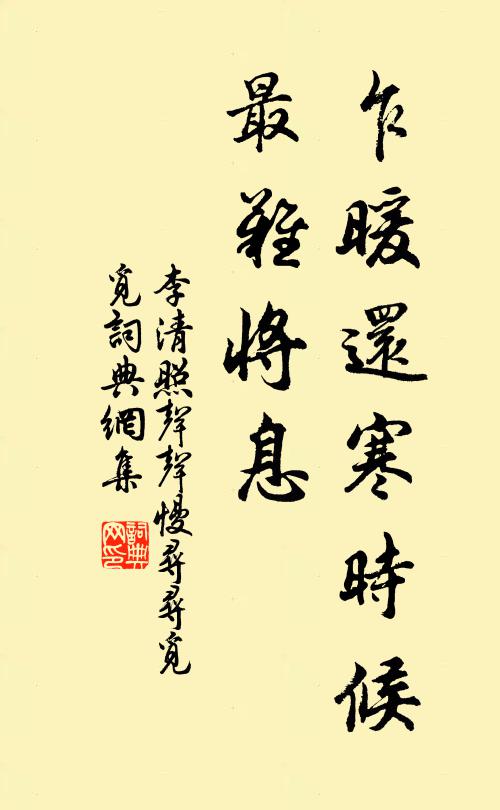 乍暖還寒時候
最難將息
李清照聲聲慢尋尋覓
覓詞典網集
詞典網印